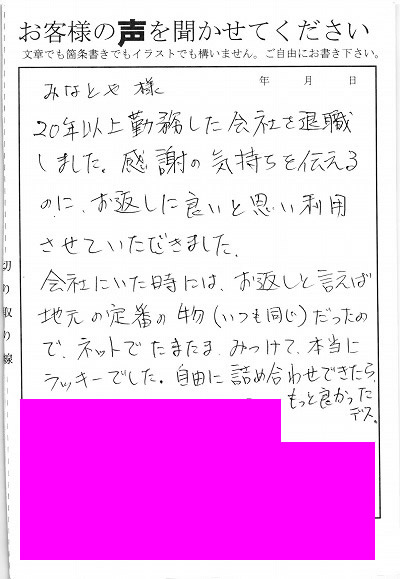 お客様の声を聞かせてください
文章でも箇条書きでもイラストでも構いません。ご自由にお書き下さい。
年 月 日
みなとや 様
20年以上勤務した会社を退職
しました。感謝の気持ちを伝える
のに、お返しに良いと思い利用
させていただきました。
会社にいた時には、お返しと言えば
地元の定番の物(いつも同じ)だったの
で、ネットでたまたまみつけて、本当に
ラッキーでした。自由に詰め合わせできたら、
もっと良かった
デス。
切り取り線